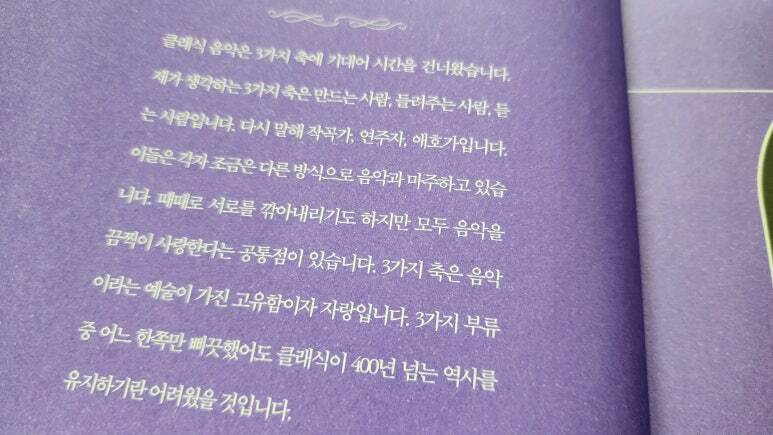 클래식 음악은 3가지 축에 기대어 시간을 건너왔습니다.
제가 생각하는 3가지 축은 만드는 사람, 들려주는 사람, 듣
는 사람입니다. 다시 말해 작곡가, 연주자, 애호가입니다.
이들은 각자 조금은 다른 방식으로 음악과 마주하고 있습
니다. 때때로 서로를 깎아내리기도 하지만 모두 음악을
끔찍이 사랑한다는 공통점이 있습니다. 3가지 축은 음악
이라는 예술이 가진 고유함이자 자랑입니다. 3가지 부류
중 어느 한쪽만 삐끗했어도 클래식이 400년 넘는 역사를
유지하기란 어려웠을 것입니다.